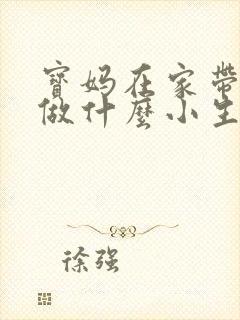 寶媽在家帶
做什麼小生
徐强